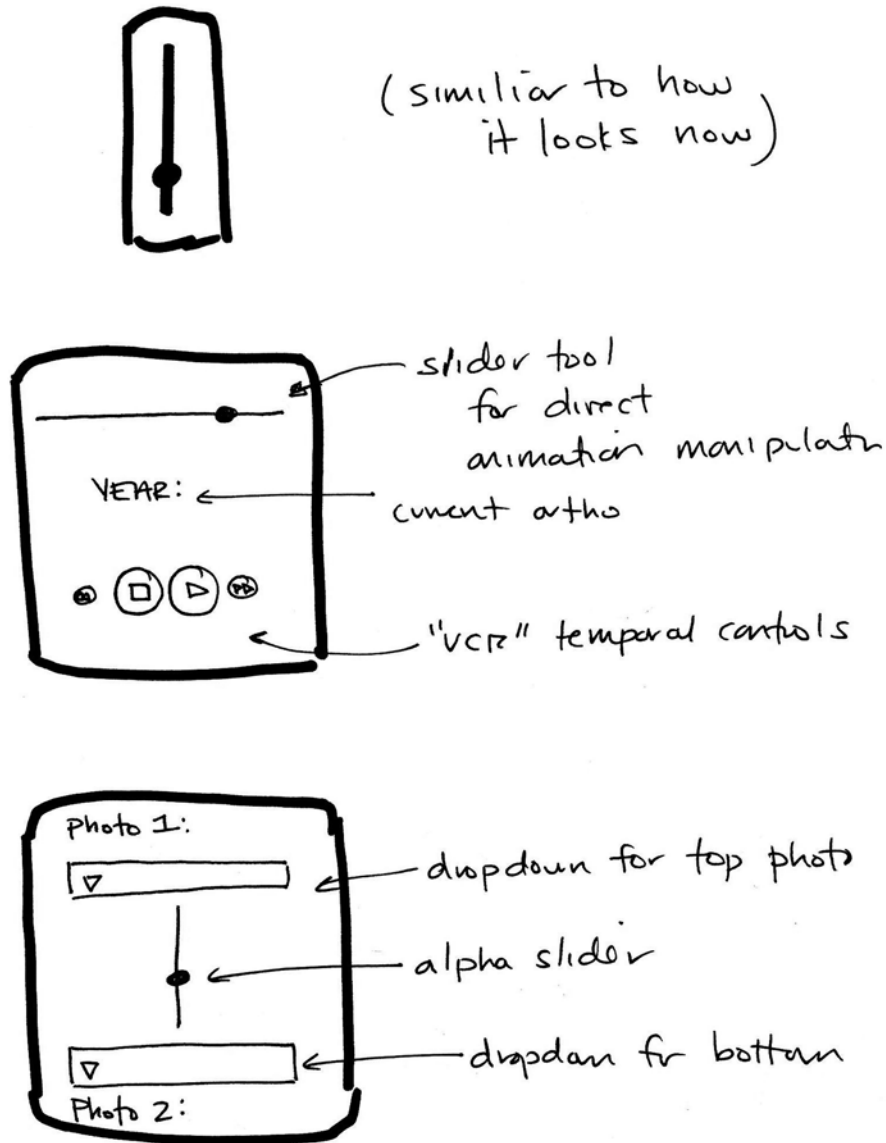 (similiar to how
it looks now)
slider tool
for direct
animation manipulatn
YEAR:
current ortho
"VCR" temporal controls
Photo 1:
dropdown for top photo
alpha slider
dropdown for bottom
Photo 2: